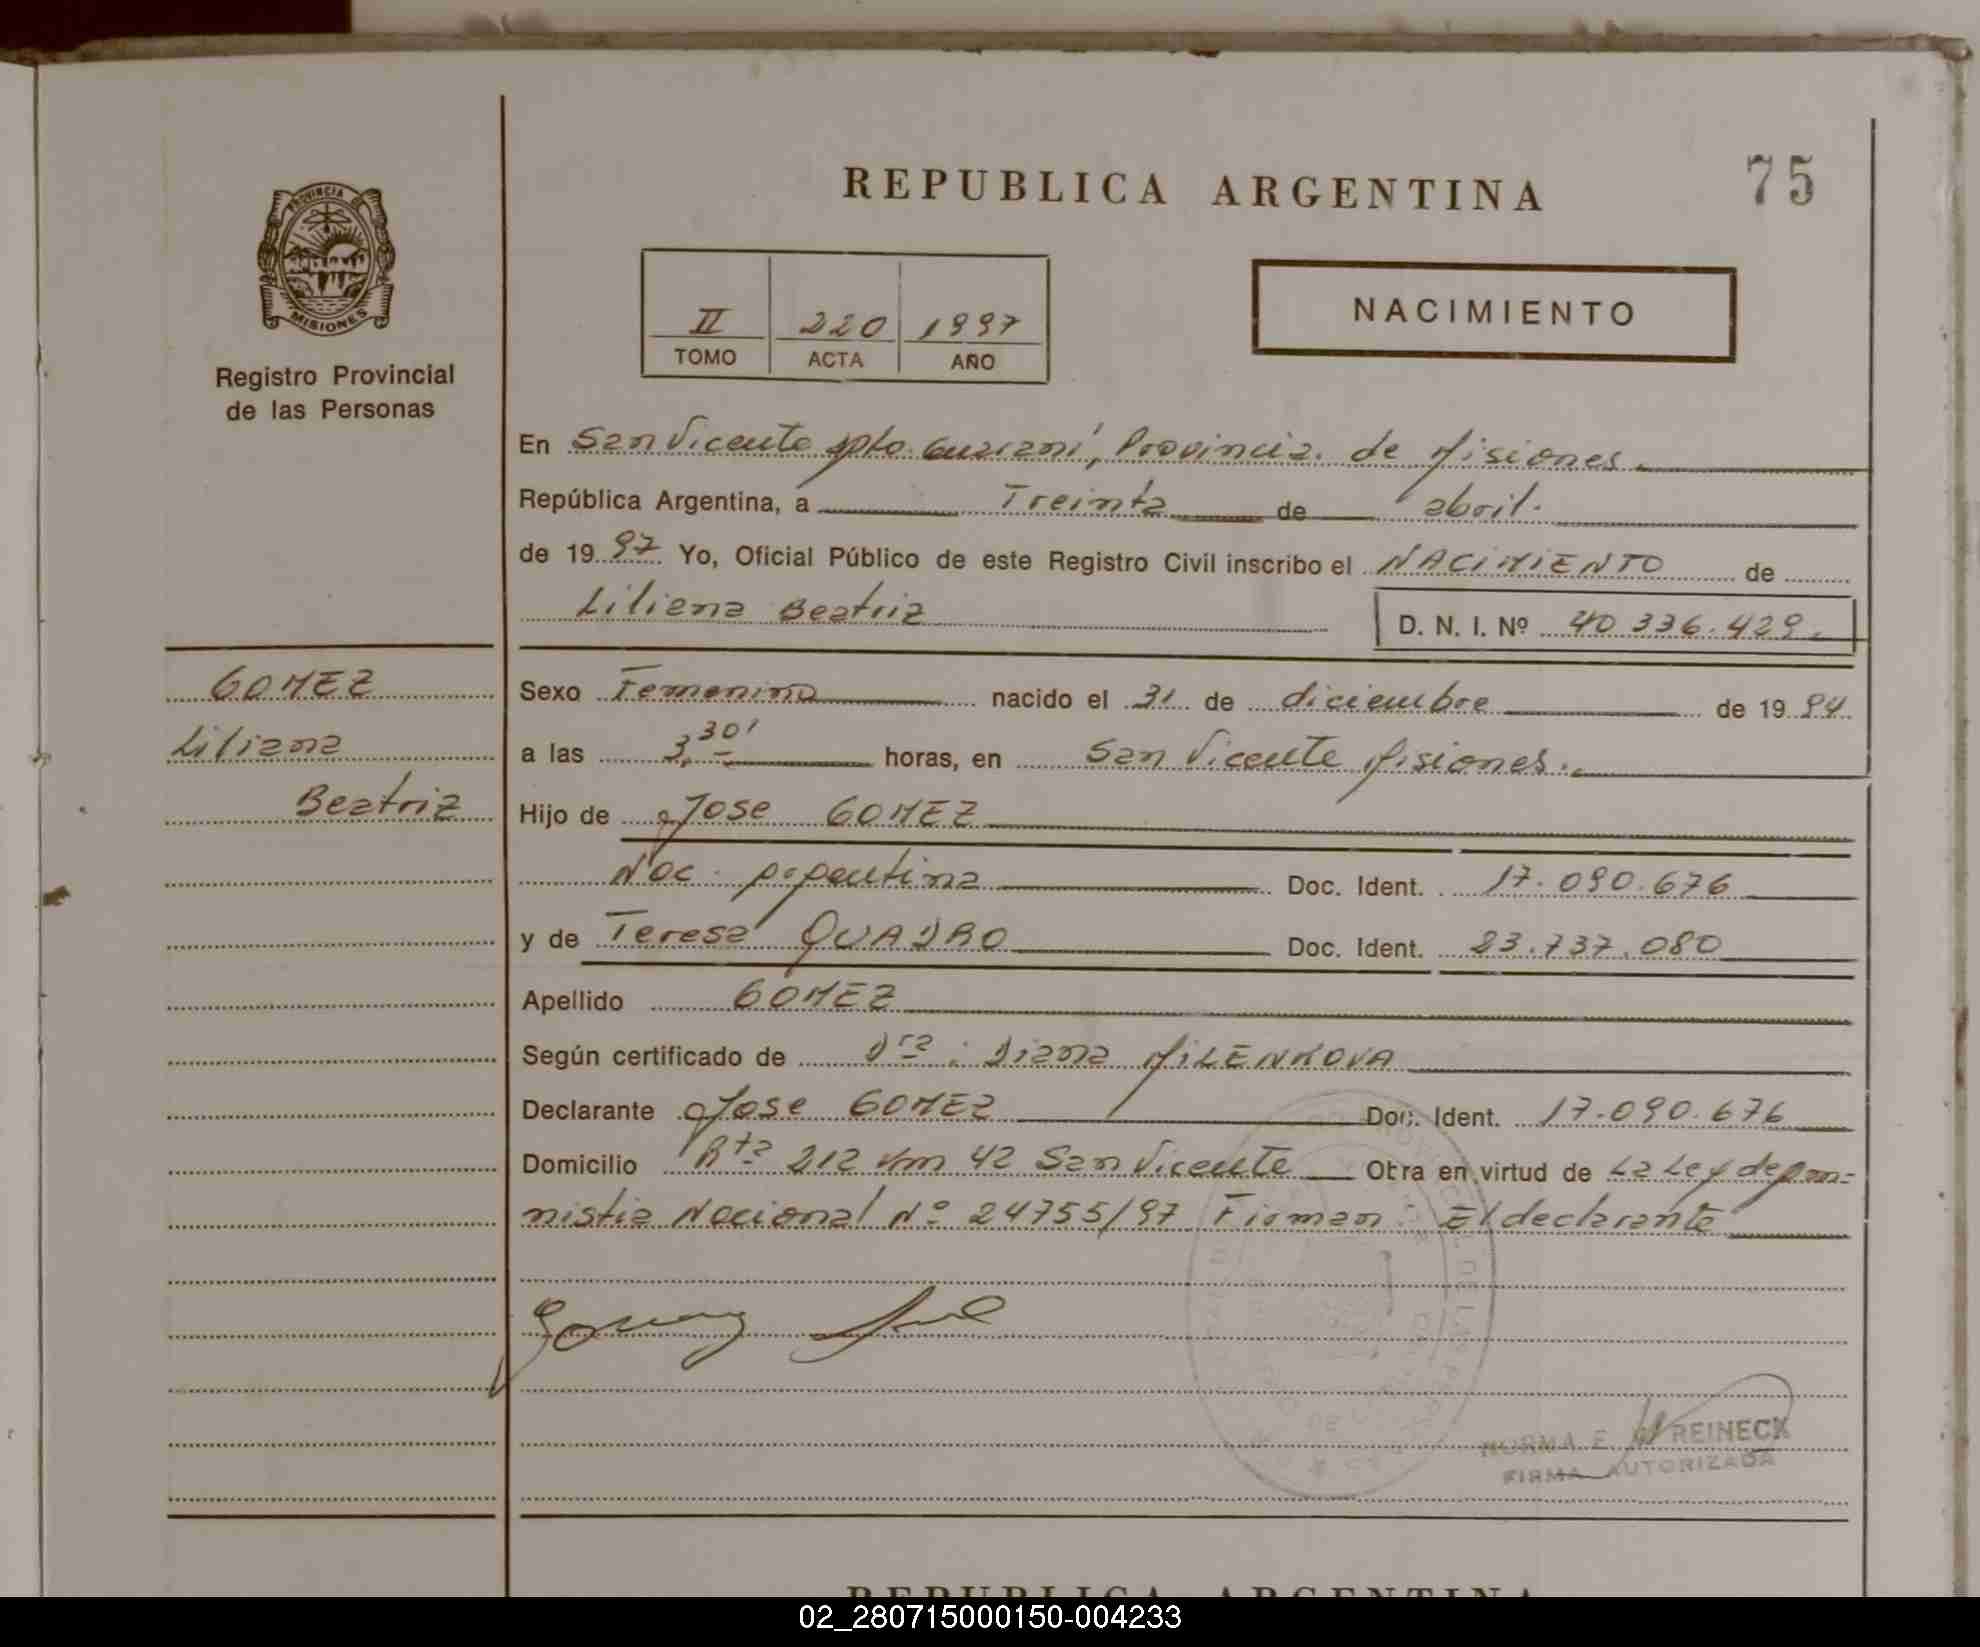 REPUBLICA ARGENTINA
75
PROVINCIA DE
MISIONES
Registro Provincial
de las Personas
II 220 1997
TOMO ACTA AÑO
NACIMIENTO
En San Vicente Dpto. Guaraní, Provincia de Misiones.
República Argentina, a Treinta de abril.
de 19 97 Yo, Oficial Público de este Registro Civil inscribo el NACIMIENTO de
Liliana Beatriz
D. N. I. Nº 40 336.429.
GOMEZ
Liliana
Beatriz
Sexo Femenino nacido el 31 de diciembre de 19 94
a las 3,30' horas, en San Vicente Misiones.
Hijo de Jose GOMEZ
Nac. Argentina Doc. Ident. 17.090.676
y de Teresa QUADRO Doc. Ident. 23.737.080
Apellido GOMEZ
Según certificado de Dra. Diana MILENKOVA
Declarante Jose GOMEZ Doc. Ident. 17.090.676
Domicilio Rta 212 Km 42 San Vicente Otra en virtud de La Ley de Am-
nistia Nacional Nº 24755/97 Firman: El declarante
NORMA E. REINECK
FIRMA AUTORIZADA
REPUBLICA ARGENTINA
02_280715000150-004233